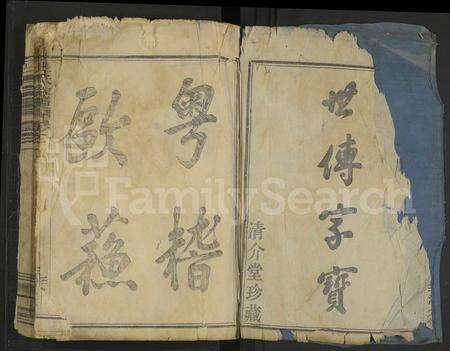 世傳字寶
清介堂珍藏
粤稽
歐蘓
FamilySearch